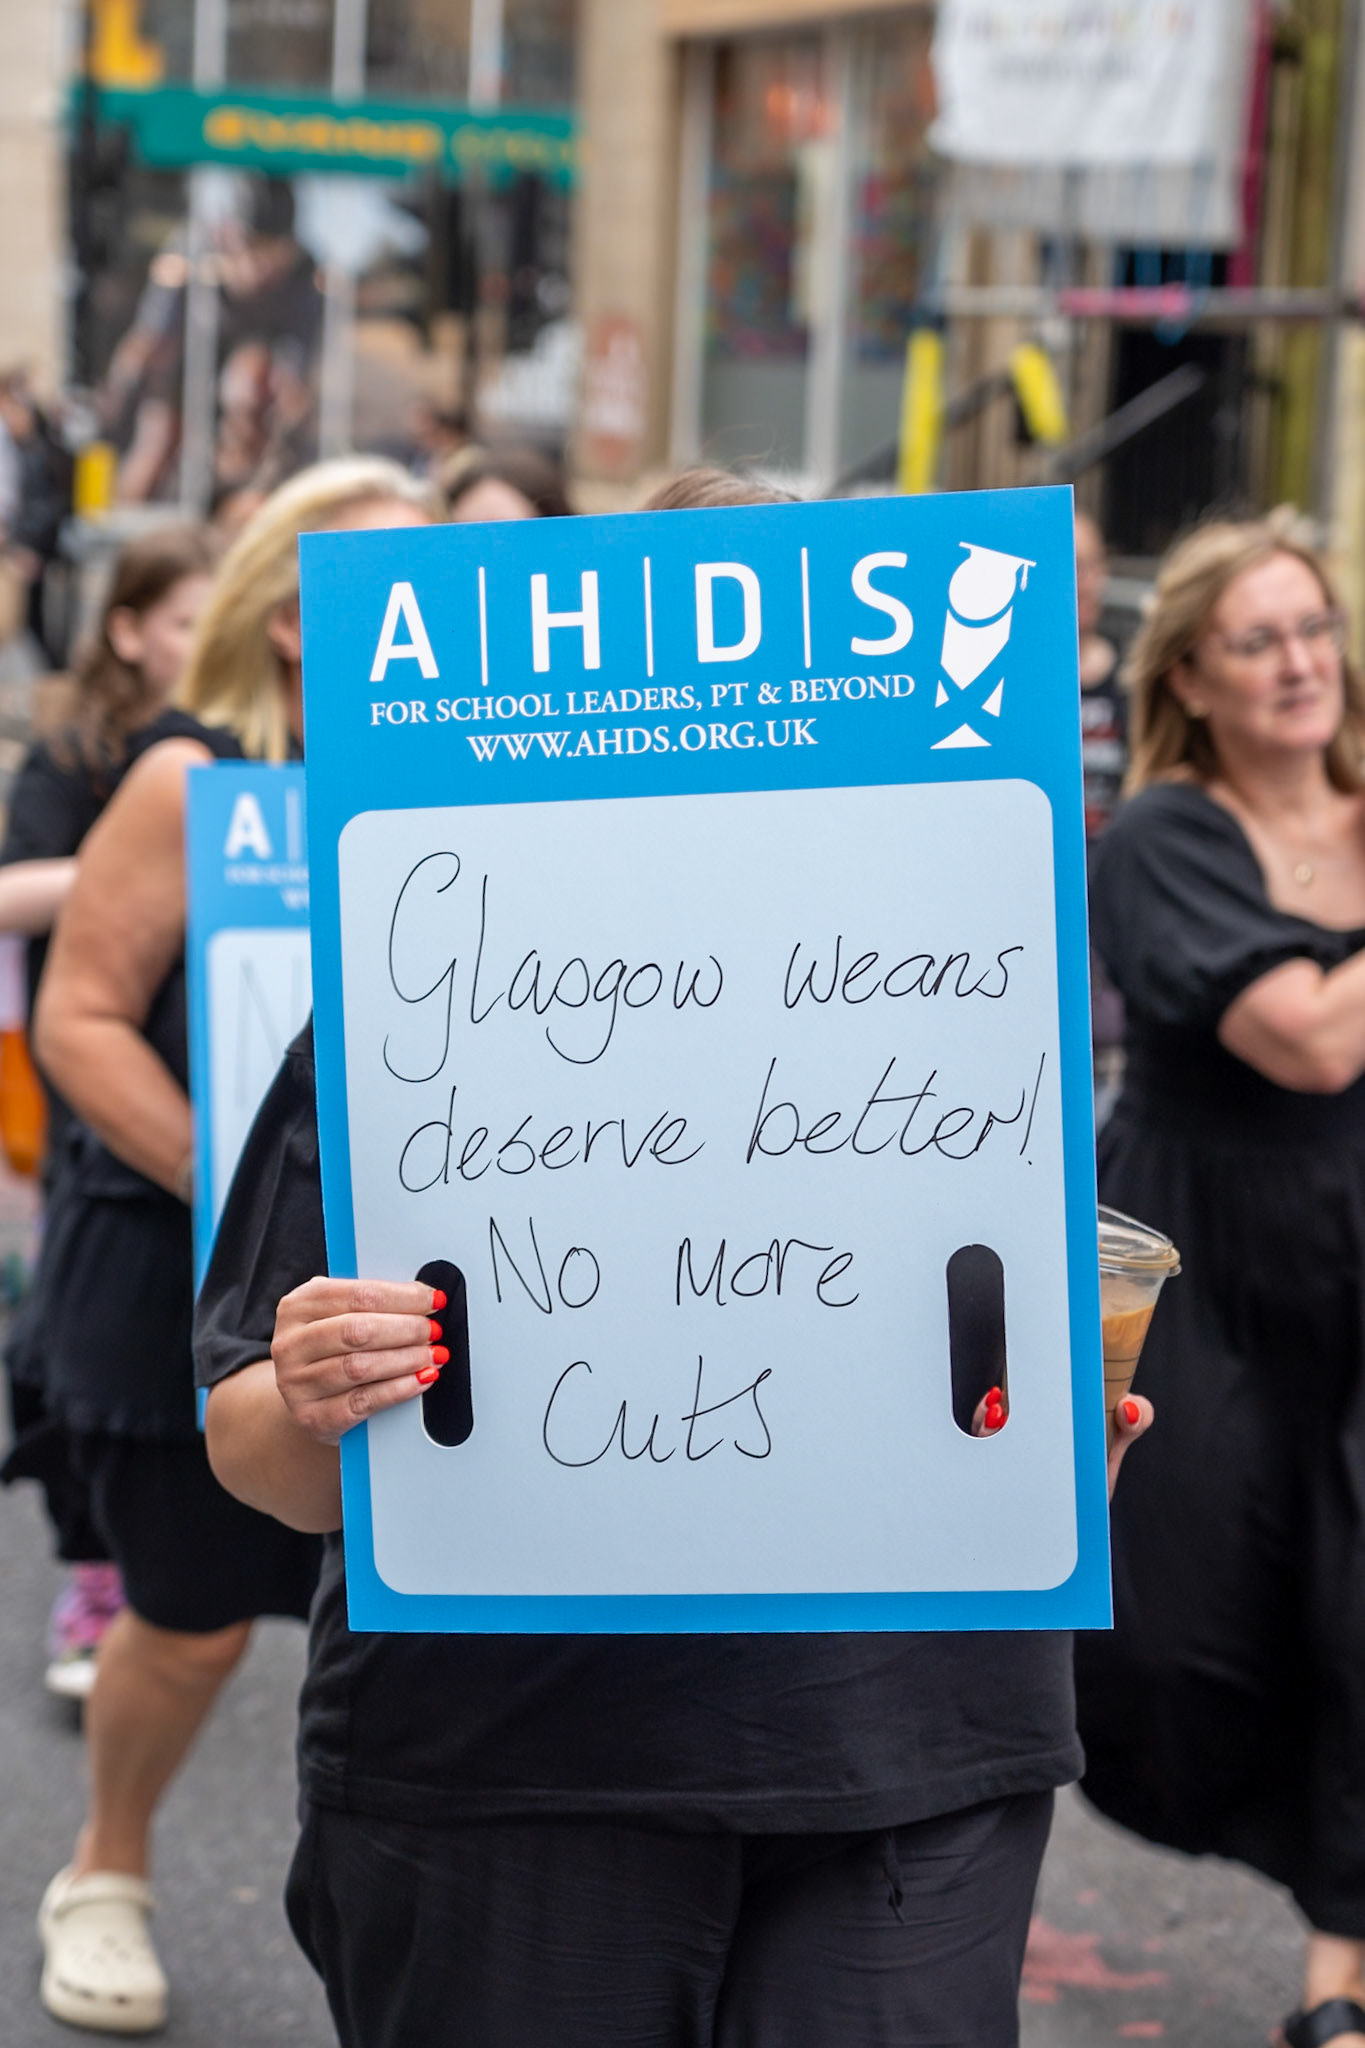 A|H|D|S
FOR SCHOOL LEADERS, PT & BEYOND
WWW.AHDS.ORG.UK
Glasgow weans
deserve better!
No More
Cuts
A
N